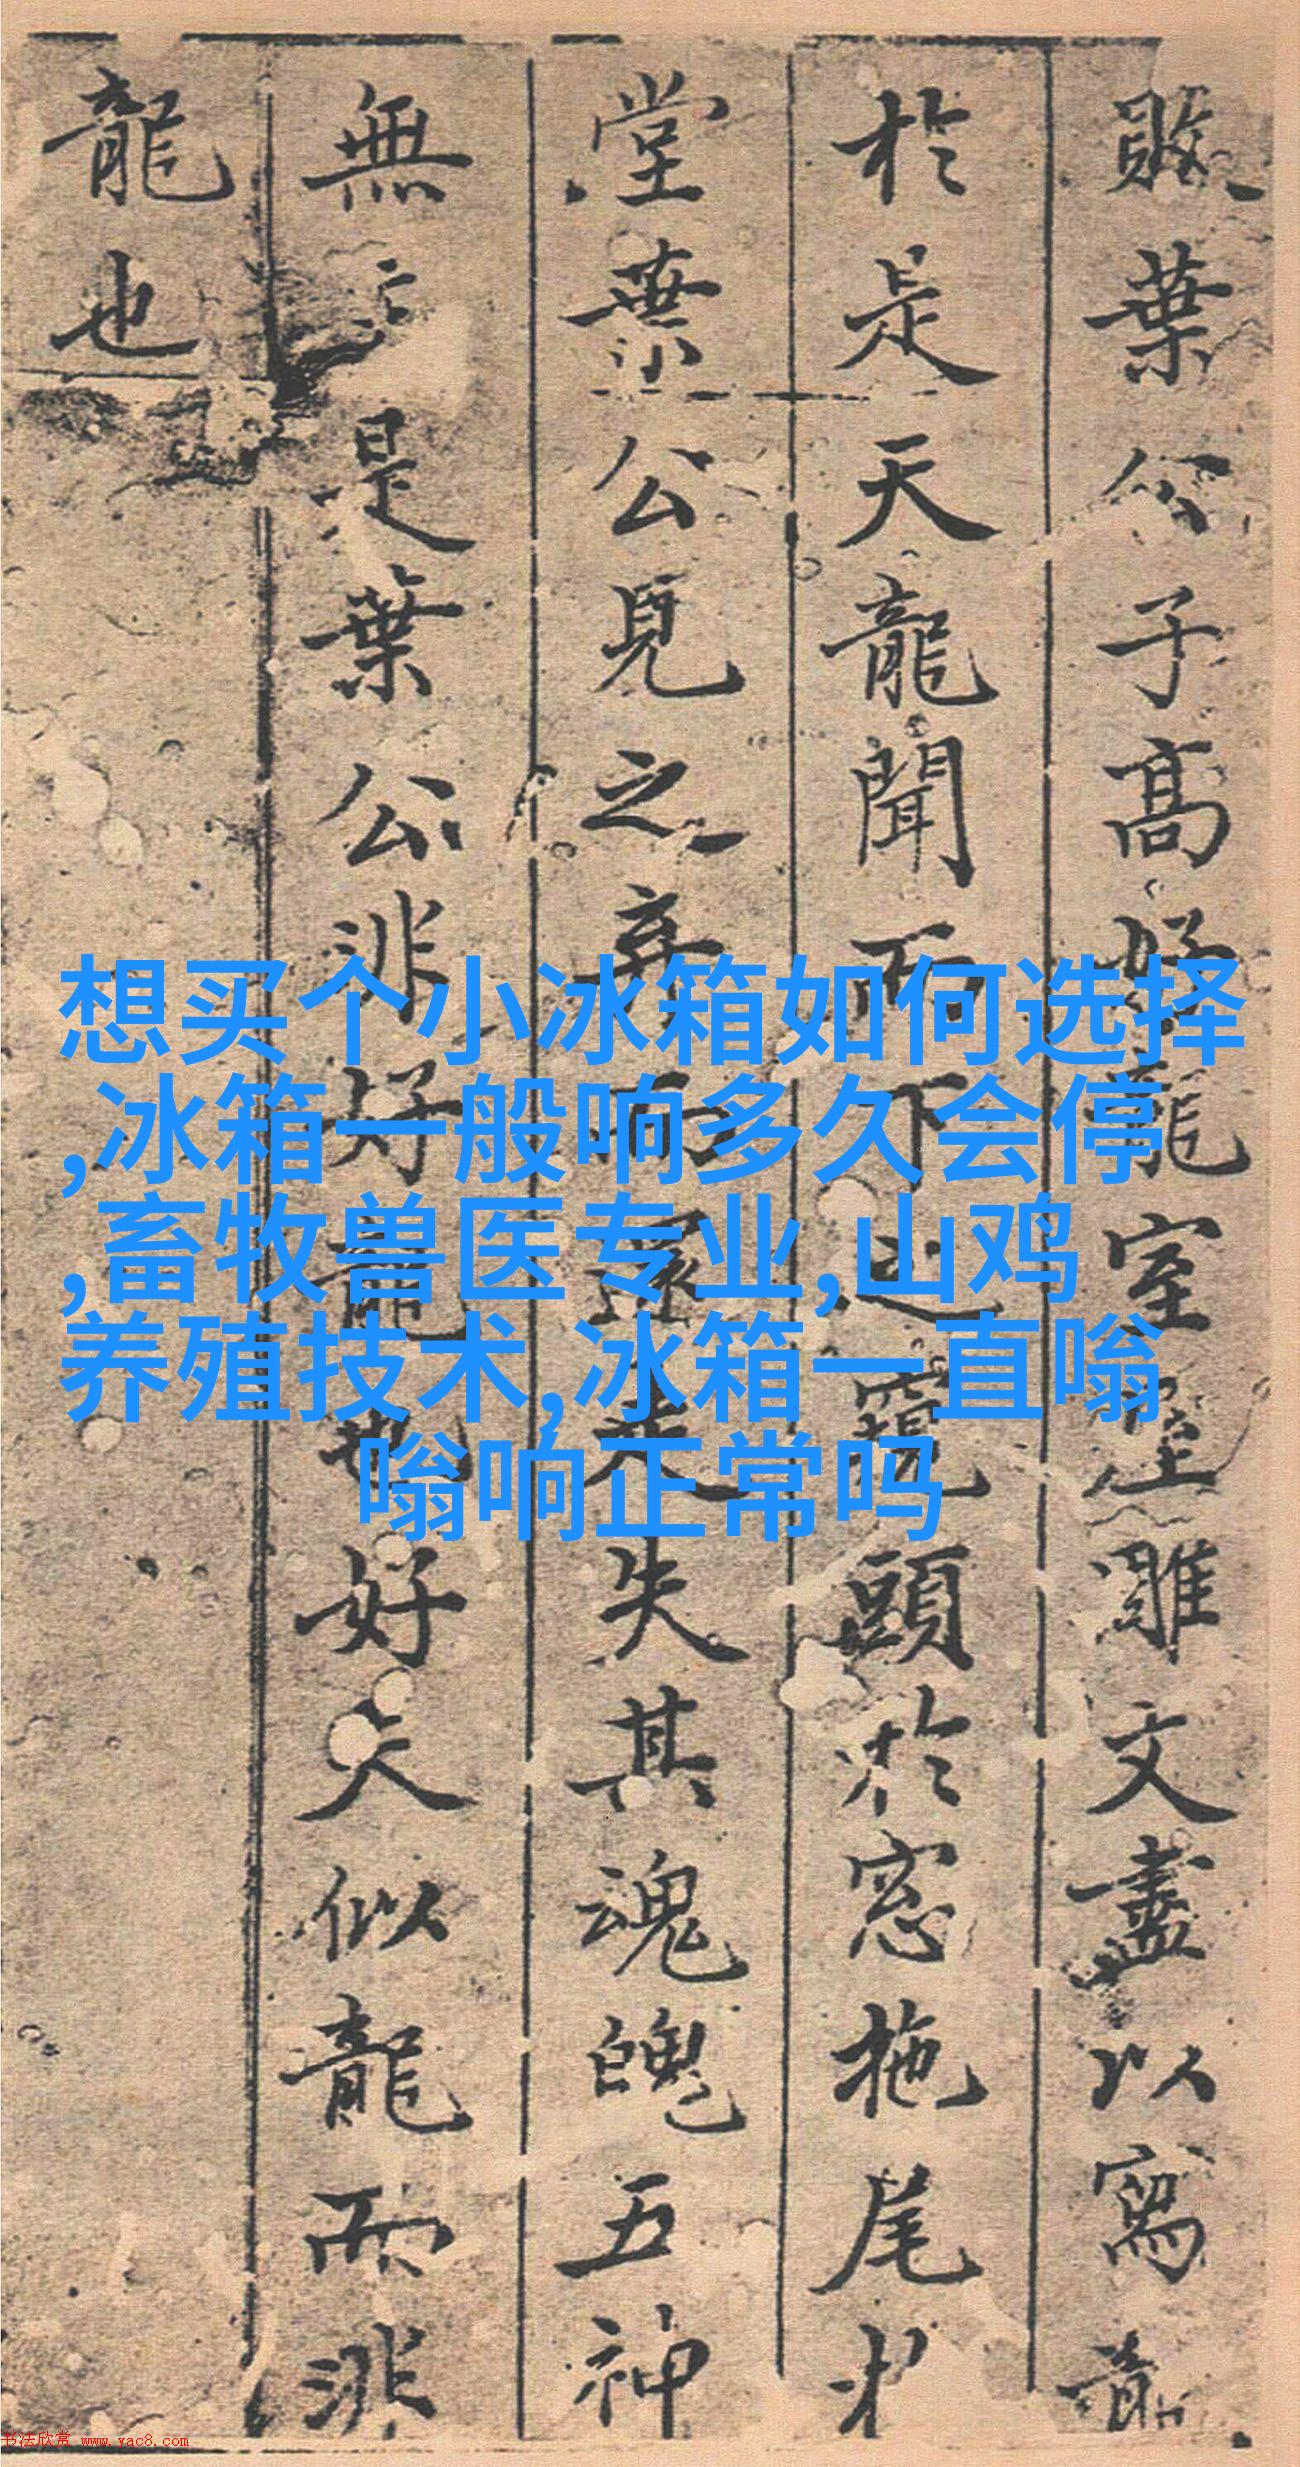 葉公子高好龍室屋雕文盡以寫龍
於是天龍聞而下之窺頭於窓拖尾於
堂葉公見之弃而還走失其魂魄五神
無主是葉公非好龍也好夫似龍而非
龍也
想买个小冰箱如何选择
,冰箱一般响多久会停
,畜牧兽医专业,山鸡
养殖技术,冰箱一直嗡
嗡响正常吗
书法欣赏 www.yac8.com